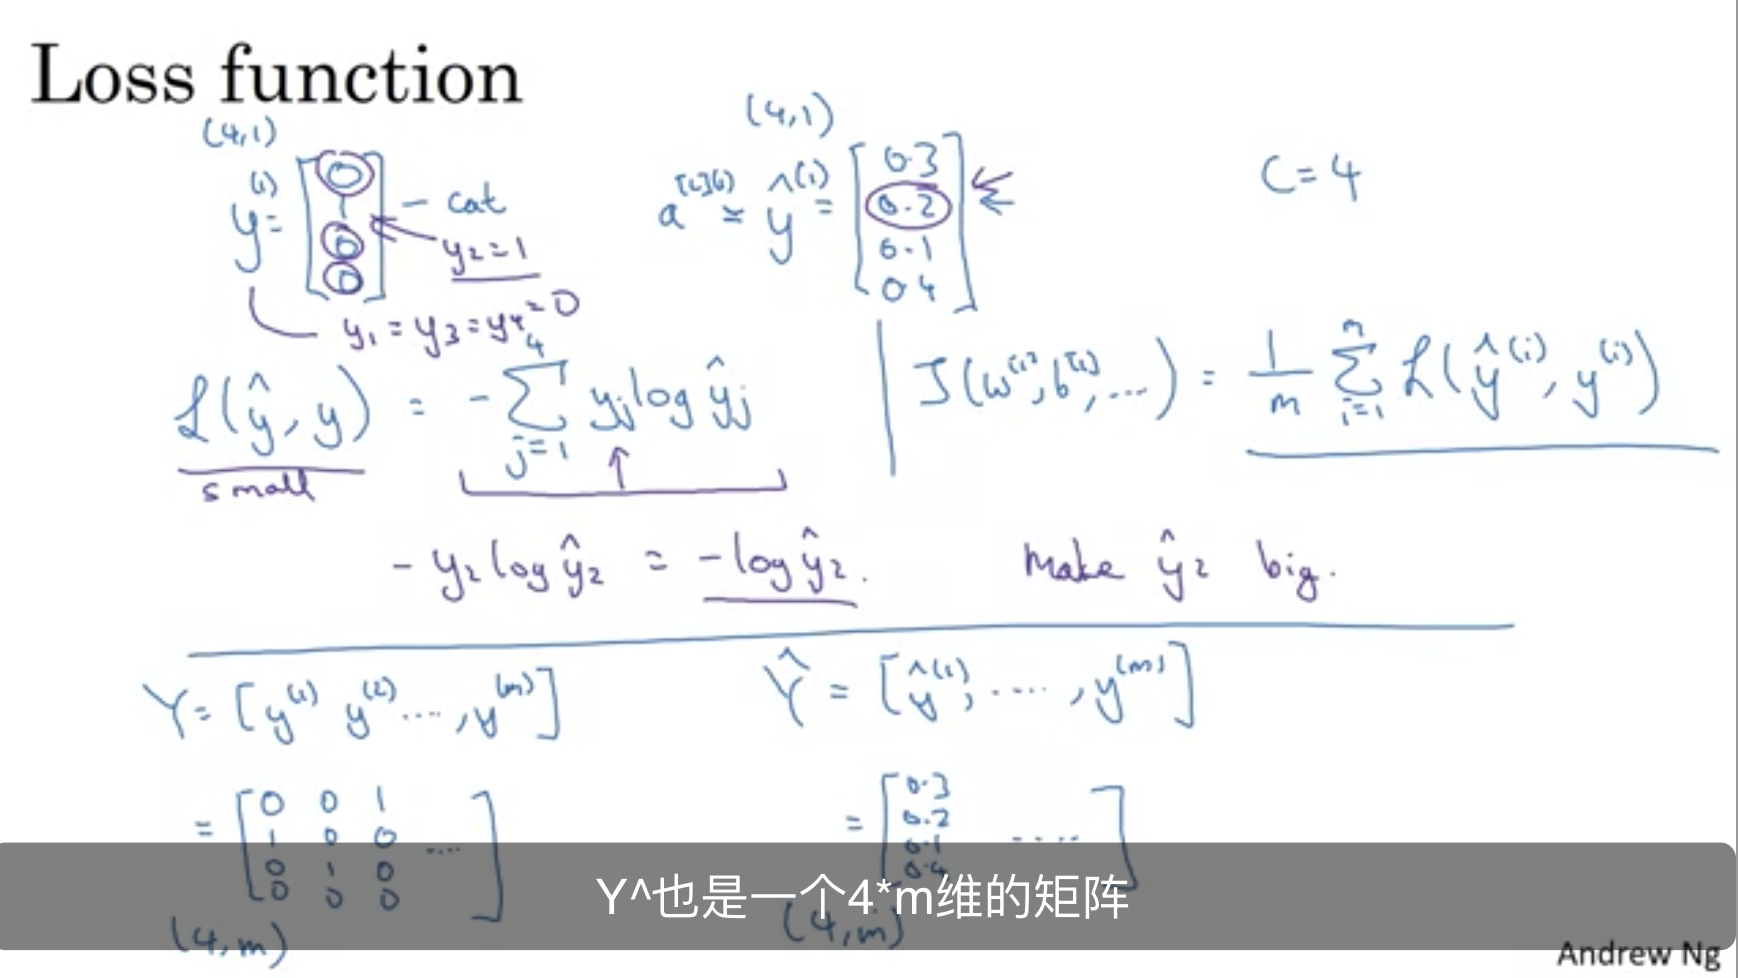 Loss function
(4,1)
y^(1) = [0 1 0 0] - cat
y₂=1
y₁ = y₃ = y₄ = 0
(4,1)
a^[L](1) = ŷ^(1) = [0.3 0.2 0.1 0.4]
C=4
ℒ(ŷ, y) = - Σ_{j=1}^{4} yⱼ log ŷⱼ
small
J(w^[1], b^[1], ...) = 1/m Σ_{i=1}^{m} ℒ(ŷ^(i), y^(i))
- y₂ log ŷ₂ = - log ŷ₂. Make ŷ₂ big.
Y = [y^(1) y^(2) ...., y^(m)]
Ŷ = [ŷ^(1), ....., y^(m)]
= [0 0 1
1 0 0 ....
0 1 0
0 0 0]
(4,m)
= [0.3
0.2
0.1 ....
0.4]
(4,m)
Y^也是一个4*m维的矩阵
Andrew Ng